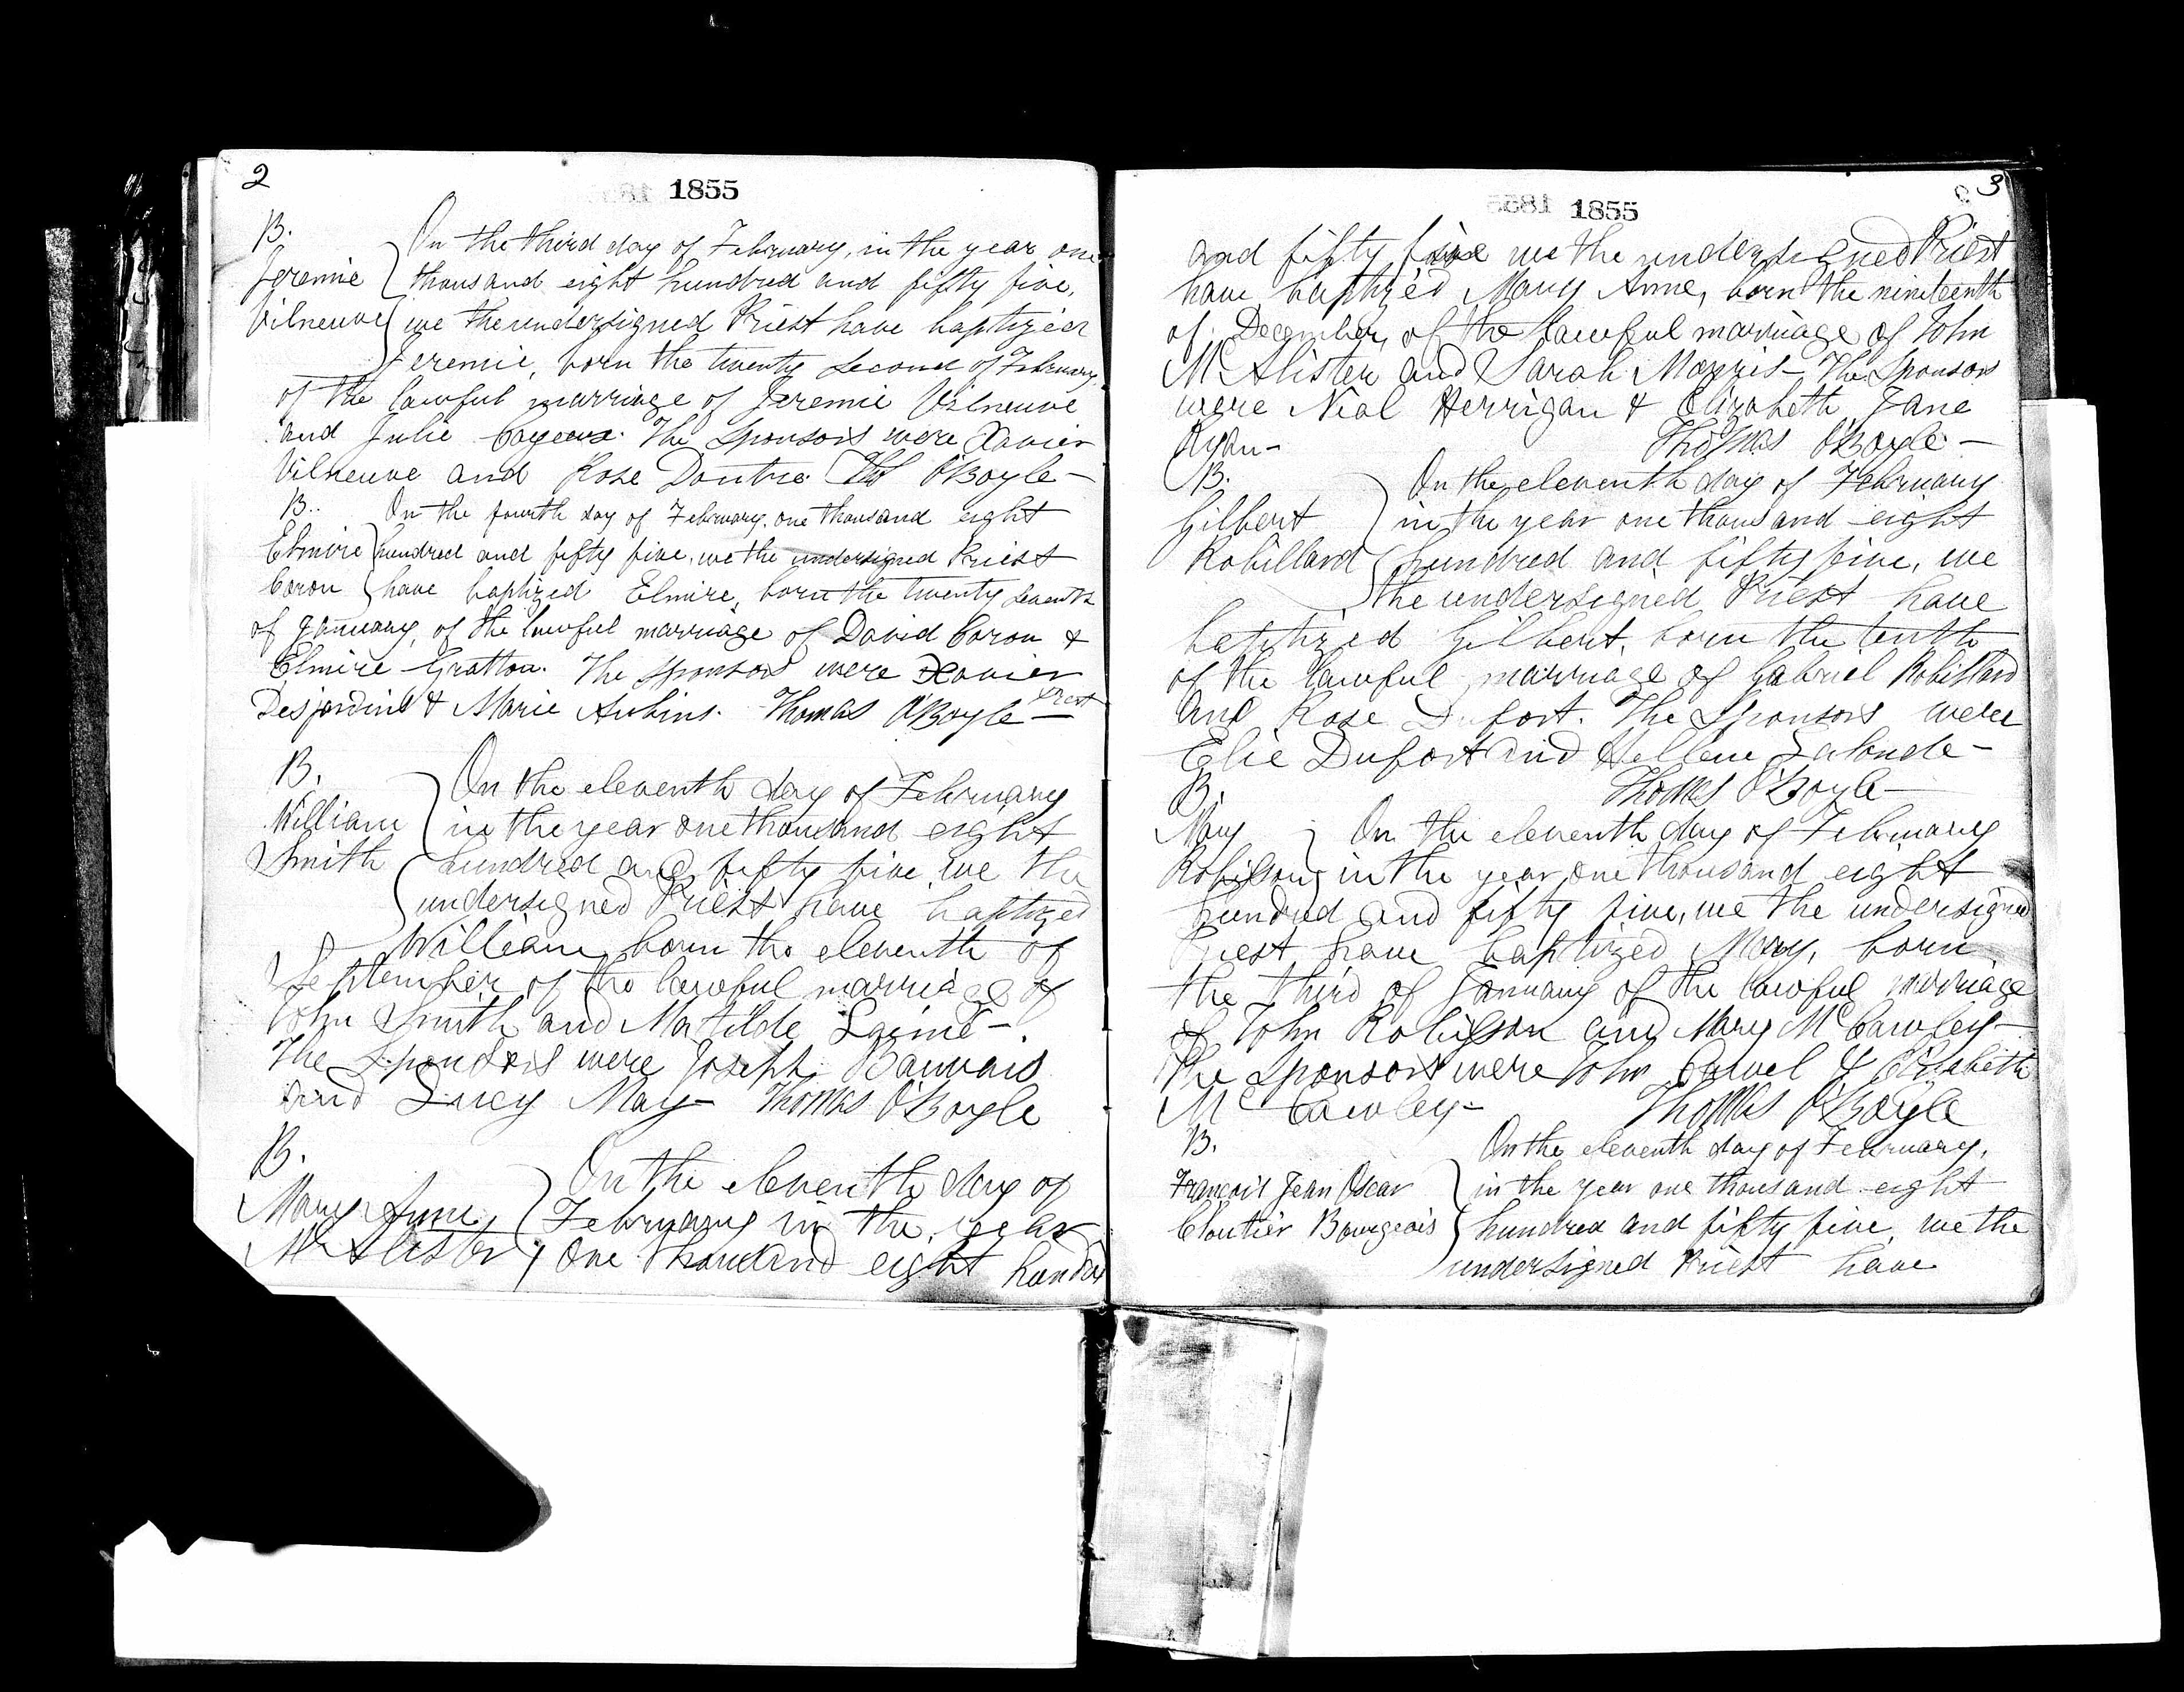 2
1855
B. On the third day of February, in the year one
Jeremie thousand eight hundred and fifty five,
Vilneuve we the undersigned Priest have baptized
Jeremie, born the twenty second of February
of the lawful marriage of Jeremie Vilneuve
and Julie The Sponsors were Xavier
Vilneuve and Rose Doutre. Ths O'Boyle -
B. On the fourth day of February, one thousand eight
Elmire hundred and fifty five, we the undersigned Priest
Caron have baptized Elmire, born the twenty seventh
of January, of the lawful marriage of David Caron &
Elmire Gratton. The sponsors were Xavier
Desjardins & Marie Aubins. Thomas O'Boyle - Priest
B. On the eleventh day of February
William in the year one thousand eight
Smith hundred and fifty five we the
undersigned Priest have baptized
William born the eleventh of
September of the lawful marriage of
John Smith and Matilde Laime -
The Sponsors were Joseph Bauvais
and Lucy May - Thomas O'Boyle
B. On the eleventh day of
Mary Anne February in the year
McAlister one thousand eight hundred
3
1855
and fifty five we the undersigned Priest
have baptized Mary Anne, born the nineteenth
of December, of the lawful marriage of John
McAlister and Sarah Morris - The Sponsors
were Nial Herrigan & Elizabeth Jane
Ryan - Thomas O'Boyle -
B. On the eleventh day of February
Gilbert in the year one thousand eight
Robillard hundred and fifty five, we
the undersigned Priest have
baptized Gilbert, born the tenth
of the lawful marriage of Gabriel Robillard
and Rose Dufort. The Sponsors were
Elie Dufort and Hellene Lalonde -
B. Thomas O'Boyle -
Mary On the eleventh day of February
Robisson in the year one thousand eight
hundred and fifty five, we the undersigned
Priest have baptized Mary, born
the third of January of the lawful marriage
of John Robisson and Mary McCawley -
The Sponsors were John & Elisabeth
McCawley - Thomas O'Boyle
B. On the eleventh day of February,
Francois Jean Oscar in the year one thousand eight
Cloutier Bourgeois hundred and fifty five, we the
undersigned Priest have